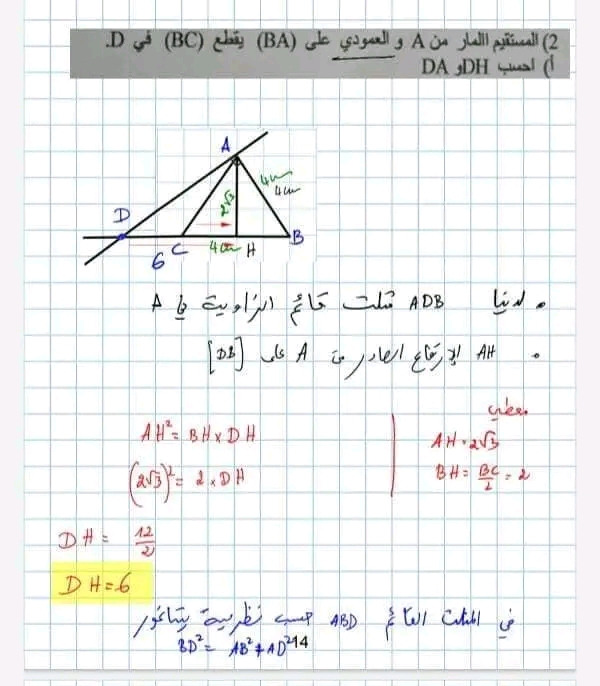 2) المستقيم المار من A و العمودي على (BA) يقطع (BC) في D.
أ) احسب DH و DA
A
4cm
4cm
2√3
D
C
4cm
H
B
6
• لدينا ADB مثلث قائم الزاوية في A
• AH الإرتفاع الصادر من A على [DB]
معطى
AH = 2√3
BH = BC/2 = 2
AH² = BH × DH
(2√3)² = 2 × DH
DH = 12/2
DH = 6
في المثلث القائم ABD حسب نظرية بيتاغور
BD² = AB² + AD²
14